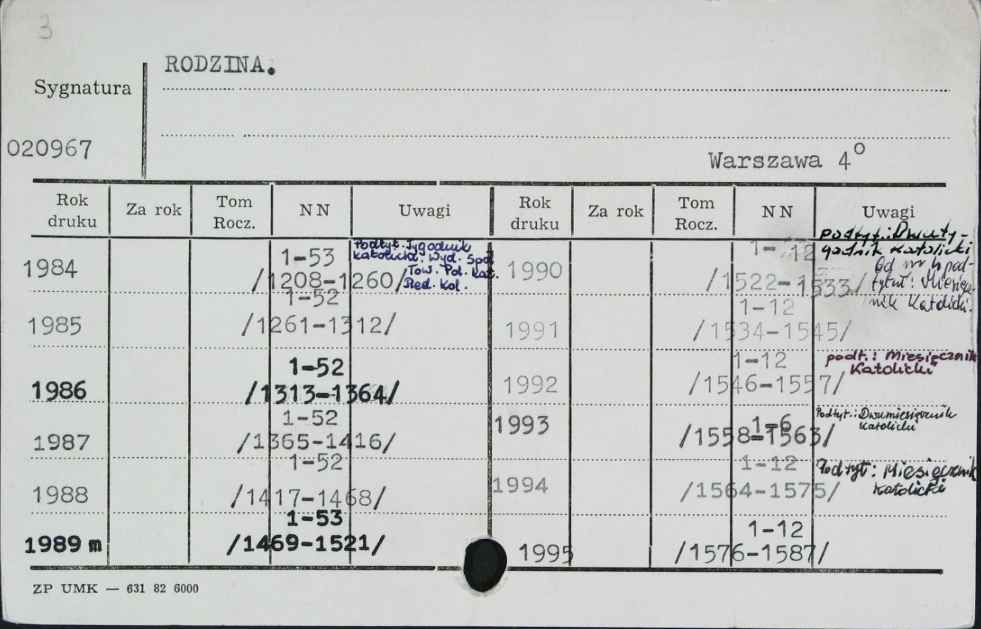 3
RODZINA.
Sygnatura
020967
Warszawa 4°
Rok druku Za rok Tom Rocz. NN Uwagi Rok druku Za rok Tom Rocz. NN Uwagi
1984 1-53 /1208-1260/
Podtyt. Tygodnik
katolicki. Wyd. Społ.
Tow. Pol. Kat.
Red. Kol.
1985 1-52 /1261-1312/
1986 1-52 /1313-1364/
1987 1-52 /1365-1416/
1988 1-52 /1417-1468/
1989 m 1-53 /1469-1521/
1990 1-12 /1522-1533/
podtyt.: Dwuty-
godnik katolicki
Od nr 4 pod-
tytuł: Miesięcz-
nik Katolicki.
1991 1-12 /1534-1545/
1992 1-12 /1546-1557/
podt.: Miesięcznik
Katolicki
1993 1-6 /1558-1563/
Podtyt.: Dwumiesięcznik
katolicki
1994 1-12 /1564-1575/
Podtyt: Miesięcznik
katolicki
1995 1-12 /1576-1587/
ZP UMK — 631 82 6000